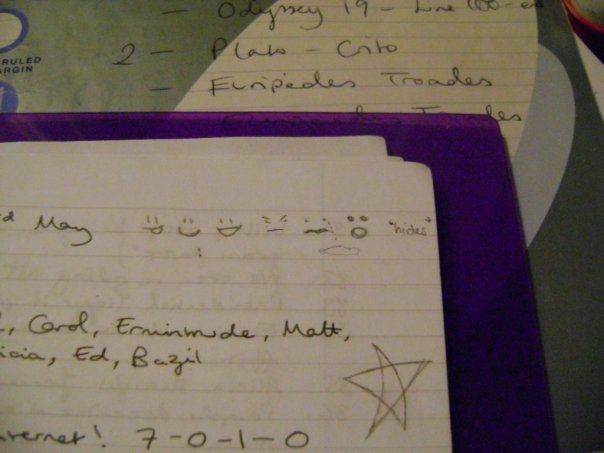 — Odyssey 19 - Line 100 -
RULED
MARGIN
2 - Plato - Crito
— Euripedes Troades
May "hides"
Carol, Erminmude, Matt,
icia, Ed, Bazil
nternet! 7-0-1-0